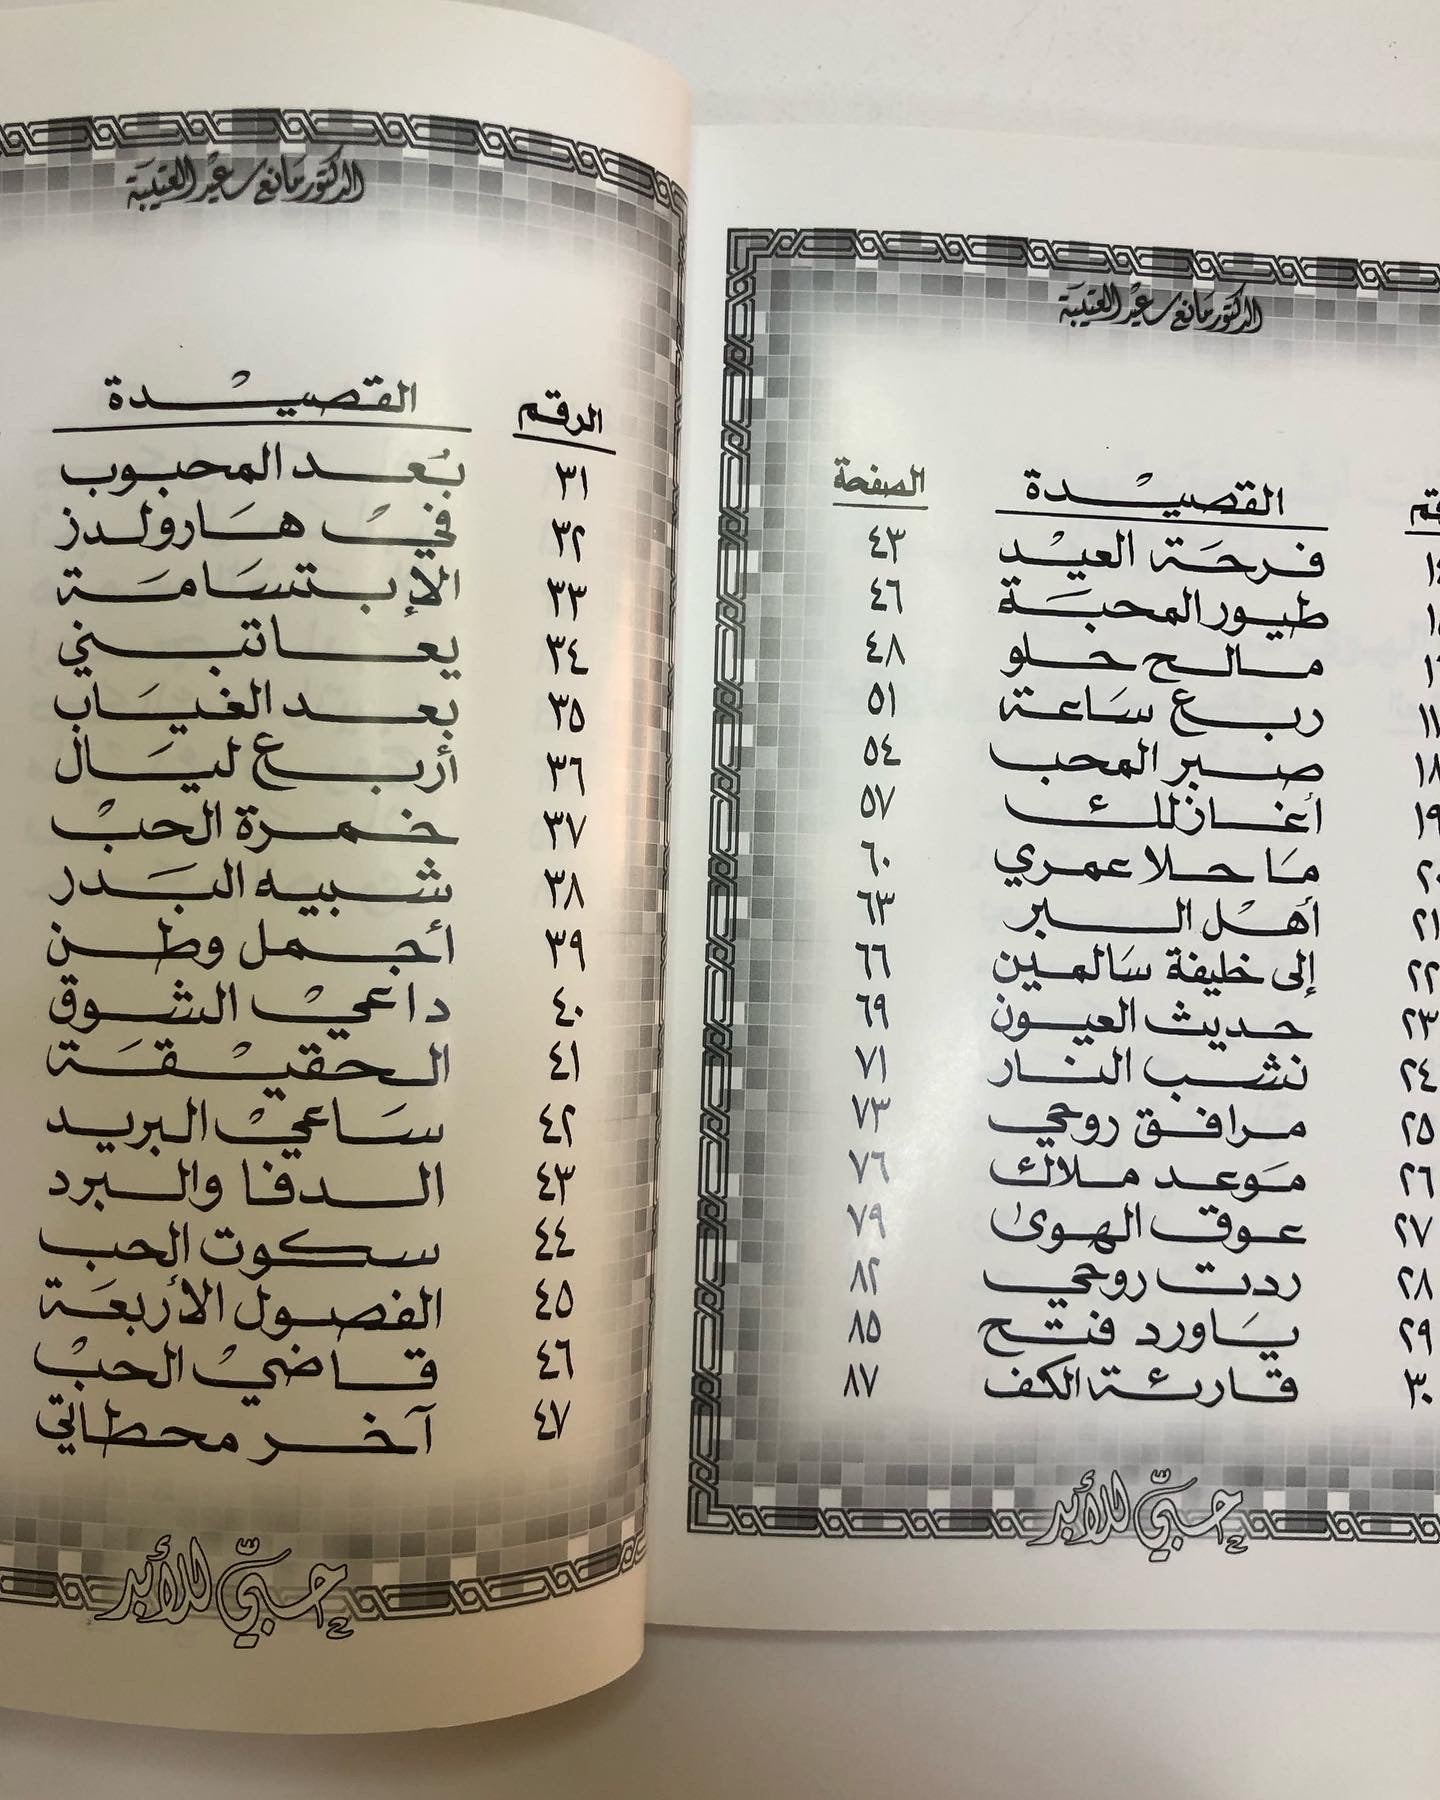 الدكتور مانع سعيد العتيبة
القصيدة الصفحة
فرحة العيد ٤٣
طيور المحبة ٤٦
مالح حلو ٤٨
١٧ ربع ساعة ٥١
١٨ صبر المحب ٥٤
١٩ أغازلك ٥٧
ما حلا عمري ٦٠
٢١ أهل البر ٦٣
٢٢ إلى خليفة سالمين ٦٦
٢٣ حديث العيون ٦٩
٢٤ نشب النار ٧١
٢٥ مرافق روحي ٧٣
٢٦ موعد ملاك ٧٦
٢٧ عوق الهوى ٧٩
٢٨ ردت روحي ٨٢
٢٩ ياورد فتح ٨٥
٣٠ قارئة الكف ٨٧
حبي للأبد
الدكتور مانع سعيد العتيبة
الرقم القصيدة
٣١ بُعد المحبوب
٣٢ في هارولدز
٣٣ الإبتسامة
٣٤ يعاتبني
٣٥ بعد الغياب
٣٦ أربع ليال
٣٧ خمرة الحب
٣٨ شبيه البدر
٣٩ أجمل وطن
٤٠ داعي الشوق
٤١ الحقيقة
٤٢ ساعي البريد
٤٣ الدفا والبرد
٤٤ سكوت الحب
٤٥ الفصول الأربعة
٤٦ قاضي الحب
٤٧ آخر محطاتي
حبي للأبد